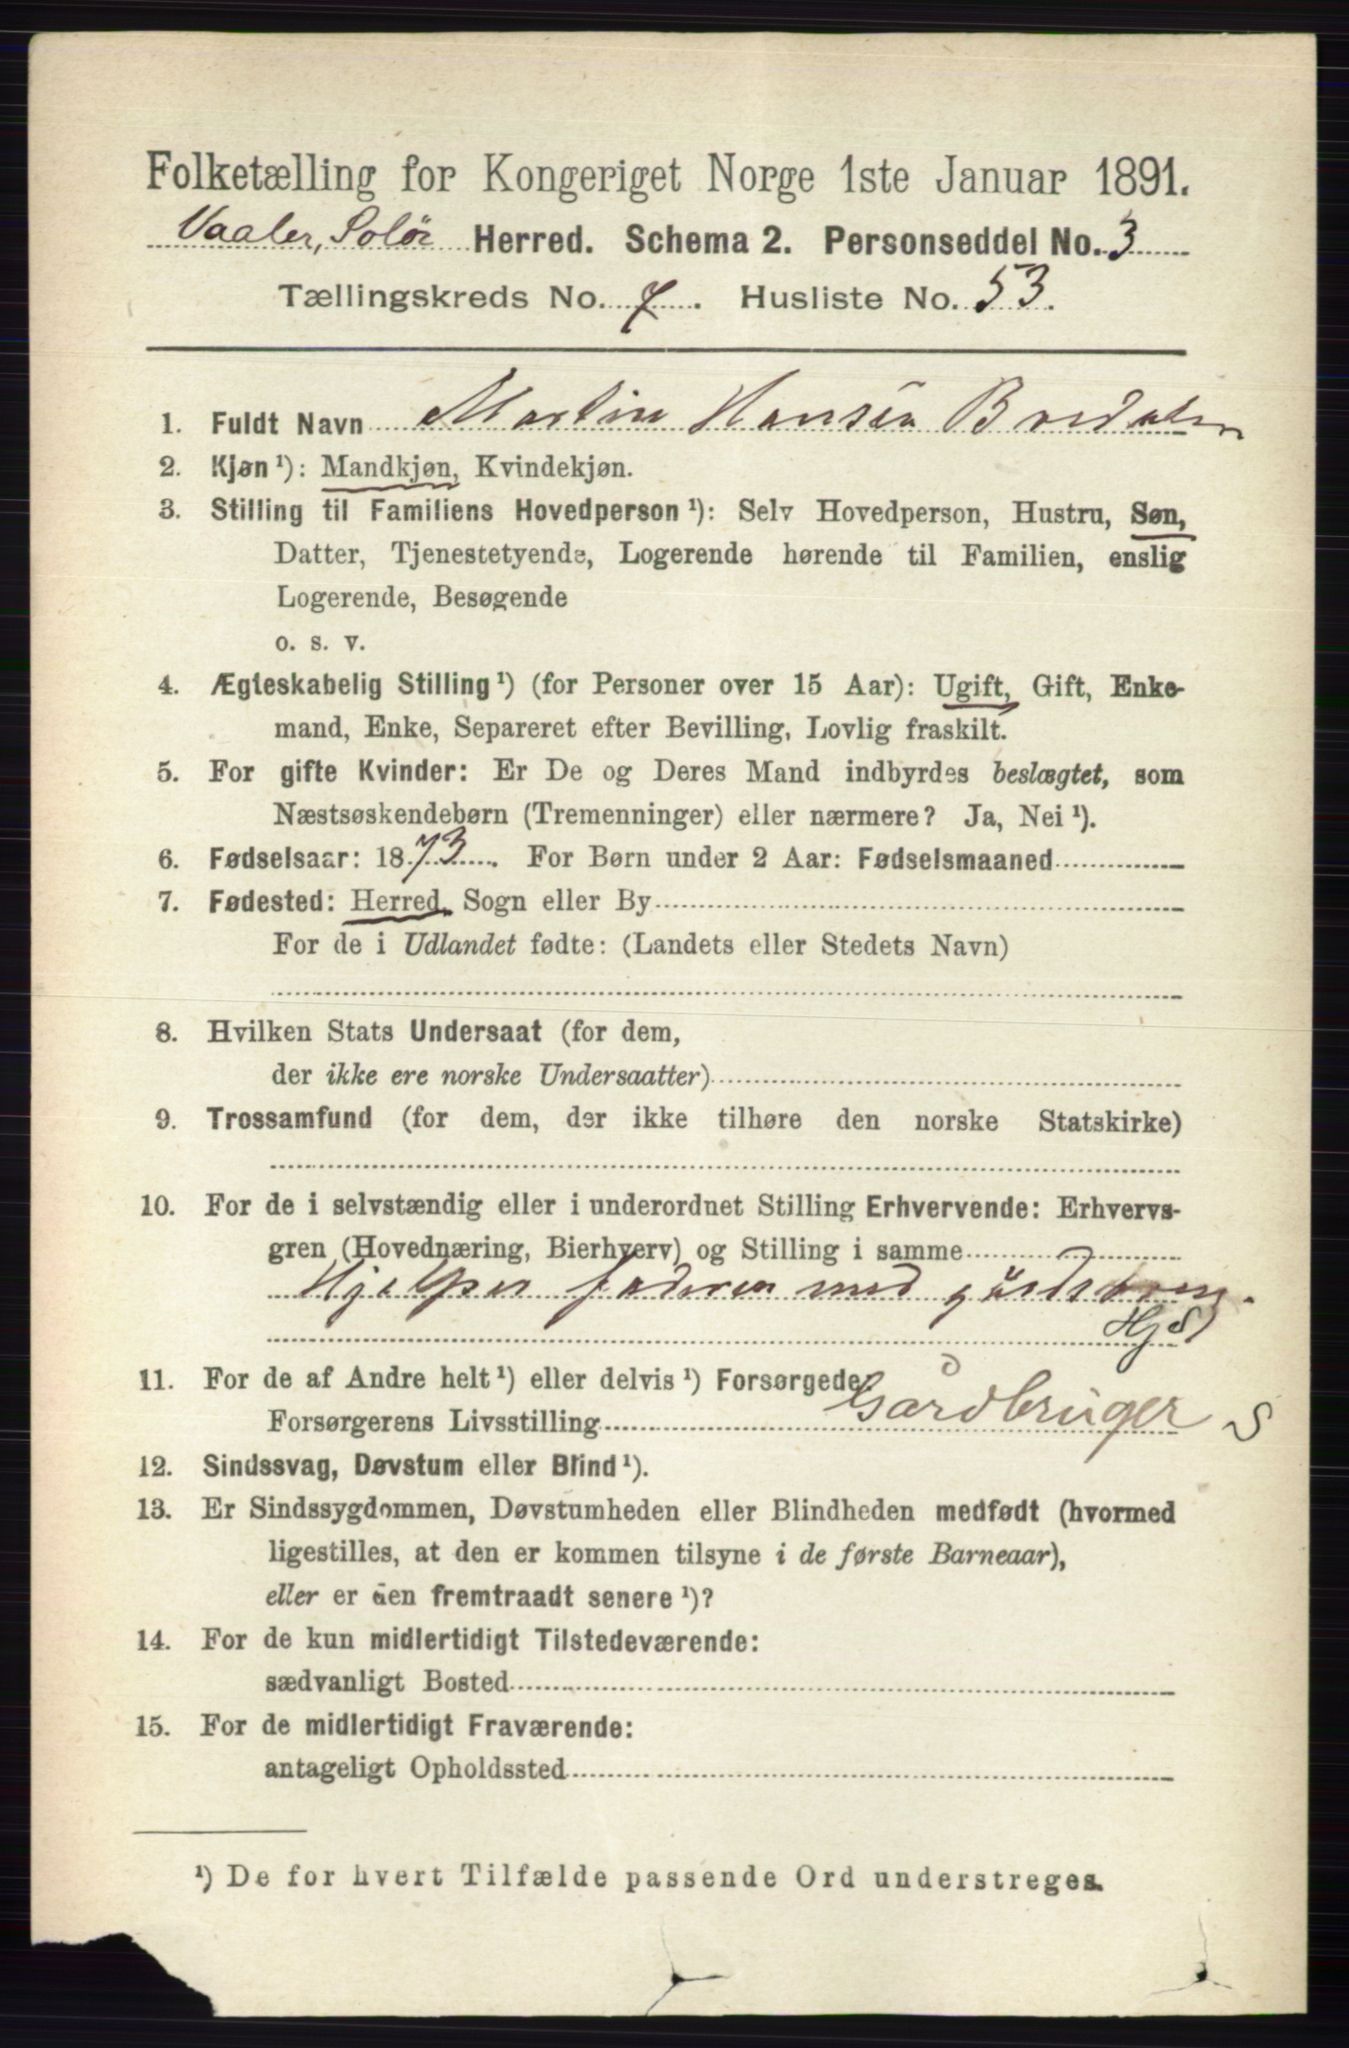 Folketælling for Kongeriget Norge 1ste Januar 1891.
Vaaler, Solør Herred. Schema 2. Personseddel No. 3
Tællingskreds No. 7. Husliste No. 53.
1. Fuldt Navn Martin Hansen Bredalen
2. Kjøn ¹): Mandkjøn, Kvindekjøn.
3. Stilling til Familiens Hovedperson ¹): Selv Hovedperson, Hustru, Søn,
Datter, Tjenestetyende, Logerende hørende til Familien, enslig
Logerende, Besøgende
o. s. v.
4. Ægteskabelig Stilling ¹) (for Personer over 15 Aar): Ugift, Gift, Enke-
mand, Enke, Separeret efter Bevilling, Lovlig fraskilt.
5. For gifte Kvinder: Er De og Deres Mand indbyrdes beslægtet, som
Næstsøskendebørn (Tremenninger) eller nærmere? Ja, Nei ¹).
6. Fødselsaar: 1873. For Børn under 2 Aar: Fødselsmaaned
7. Fødested: Herred, Sogn eller By
For de i Udlandet fødte: (Landets eller Stedets Navn)
8. Hvilken Stats Undersaat (for dem,
der ikke ere norske Undersaatter)
9. Trossamfund (for dem, der ikke tilhøre den norske Statskirke)
10. For de i selvstændig eller i underordnet Stilling Erhvervende: Erhvervs-
gren (Hovednæring, Bierhverv) og Stilling i samme
Hjelper faderen med gårdsbrug.
HjS
11. For de af Andre helt ¹) eller delvis ¹) Forsørgede
Forsørgerens Livsstilling Gårdbruger S
12. Sindssvag, Døvstum eller Blind ¹).
13. Er Sindssygdommen, Døvstumheden eller Blindheden medfødt (hvormed
ligestilles, at den er kommen tilsyne i de første Barneaar),
eller er den fremtraadt senere ¹)?
14. For de kun midlertidigt Tilstedeværende:
sædvanligt Bosted
15. For de midlertidigt Fraværende:
antageligt Opholdssted
¹) De for hvert Tilfælde passende Ord understreges.